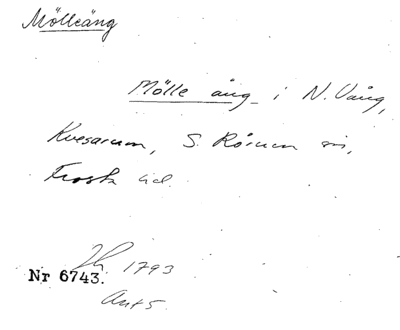 Mölleäng
Mölle äng i N. Vång,
Kvesarum, S. Rörum sn,
Frosta hd.
1793
Nr 6743.
Akt 5.